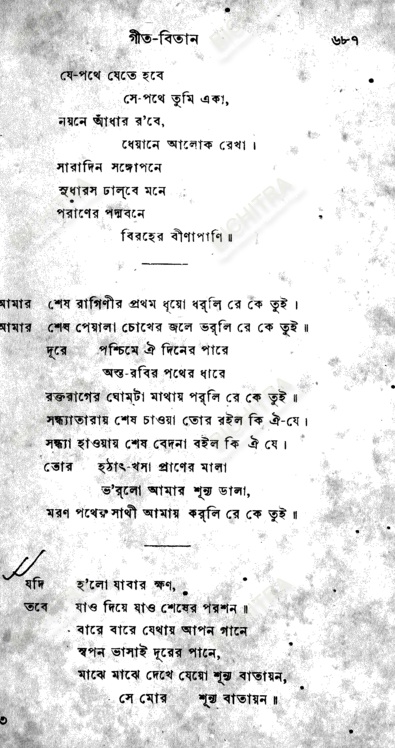 গীত-বিতান ৬৮৭
যে-পথে যেতে হবে
সে-পথে তুমি একা,
নয়নে আঁধার র'বে,
ধেয়ানে আলোক রেখা ।
সারাদিন সঙ্গোপনে
সুধারস ঢাল্‌বে মনে
পরাণের পদ্মবনে
বিরহের বীণাপাণি ॥
আমার শেষ রাগিণীর প্রথম ধূয়ো ধর্‌লি রে কে তুই ।
আমার শেষ পেয়ালা চোখের জলে ভর্‌লি রে কে তুই ॥
দূরে পশ্চিমে ঐ দিনের পারে
অস্ত-রবির পথের ধারে
রক্তরাগের ঘোম্‌টা মাথায় পর্‌লি রে কে তুই ॥
সন্ধ্যাতারায় শেষ চাওয়া তোর রইল কি ঐ-যে ।
সন্ধ্যা হাওয়ায় শেষ বেদনা বইল কি ঐ যে ।
তোর হঠাৎ-খসা প্রাণের মালা
ভ'র্‌লো আমার শূন্য ডালা,
মরণ পথের সাথী আমায় কর্‌লি রে কে তুই ॥
যদি হ'লো যাবার ক্ষণ,
তবে যাও দিয়ে যাও শেষের পরশন ॥
বারে বারে যেথায় আপন গানে
স্বপন ভাসাই দূরের পানে,
মাঝে মাঝে দেখে যেয়ো শূন্য বাতায়ন,
সে মোর শূন্য বাতায়ন ॥